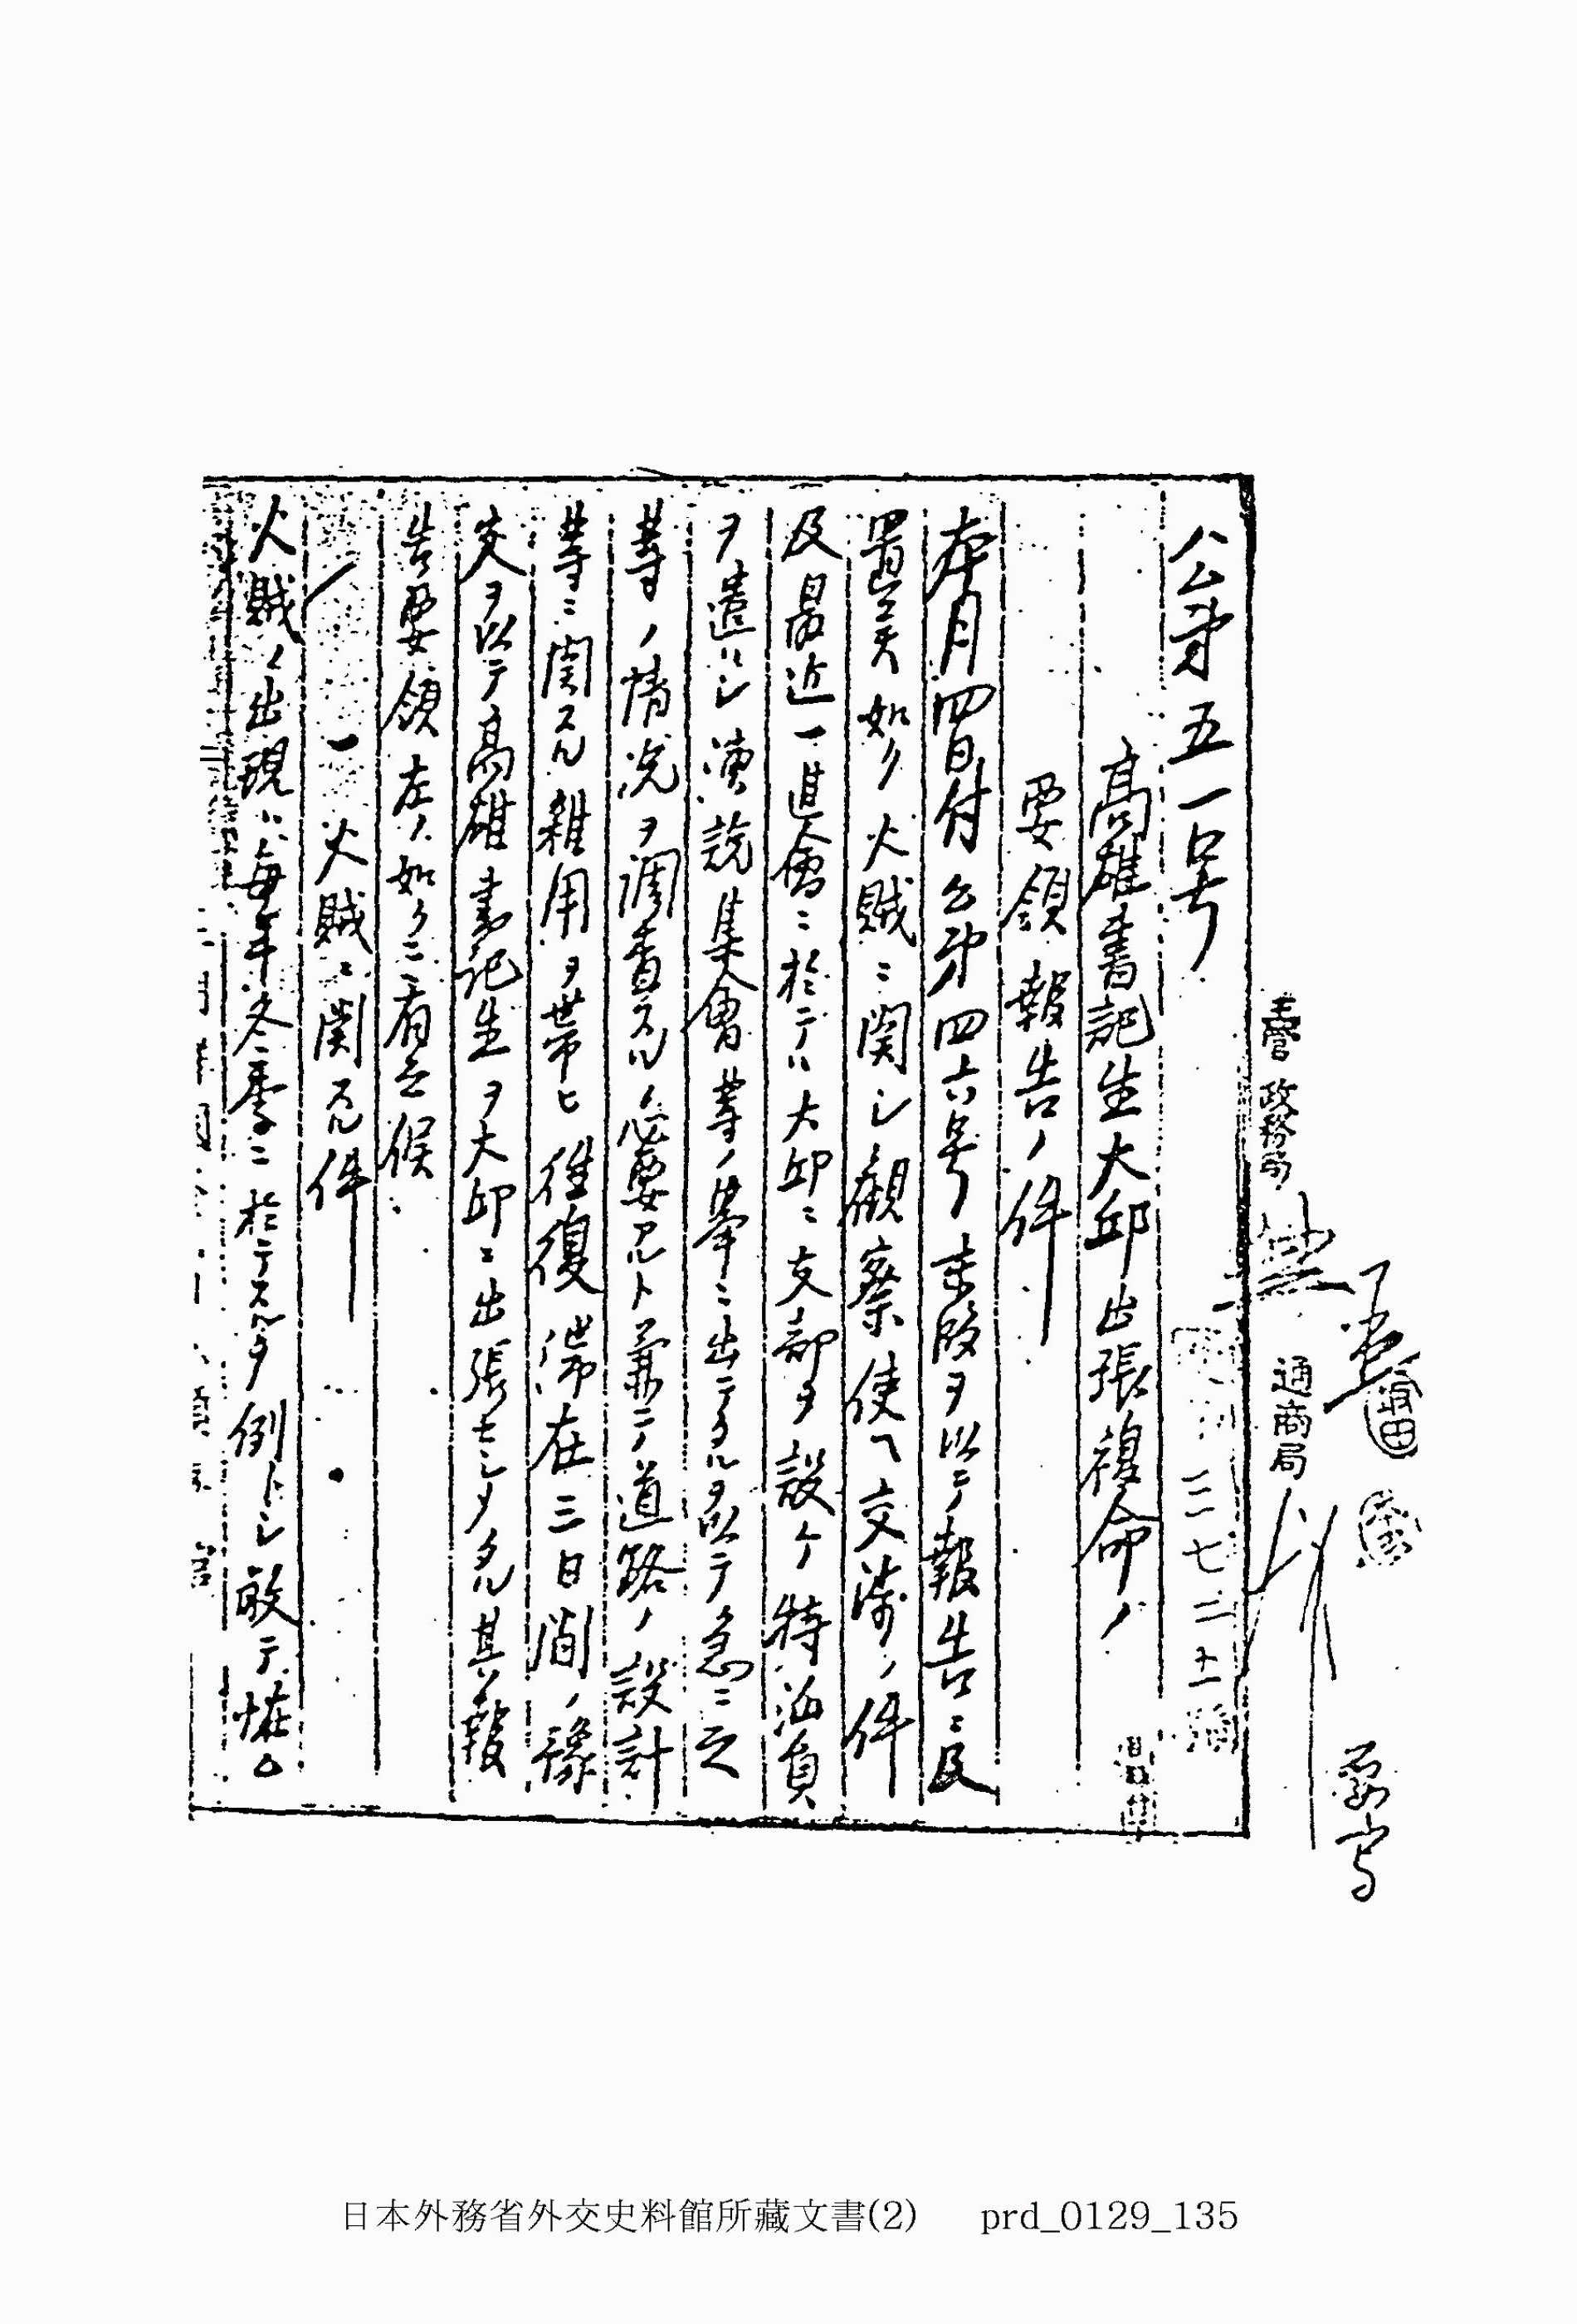 主管 政務局
通商局
要写
公第五一号
高雄書記生大邱出張復命ノ
要領報告ノ件
本月四日付公第四六号末段ヲ以テ報告ニ及
置候如ク火賊ニ関シ観察使ヘ交渉ノ件
及最近一進會ニ於テハ大邱ニ支部ヲ設ケ特派員
ヲ遣ハシ演説集會等ノ挙ニ出テタルヲ以テ急ニ之
等ノ情况ヲ調査スルノ必要アルト兼テノ道路ノ設計
等ニ関スル雑用ヲ帯ヒ往復滞在三日間ノ豫
定ヲ以テ高雄書記生ヲ大邱ニ出張セシメタル其報
告要領左ノ如クニ有之候
一火賊ニ関スル件
火賊ノ出現ハ毎年冬季ニ於テスルヲ例トシ敢テ怪ム
日本外務省外交史料館所藏文書(2) prd_0129_135